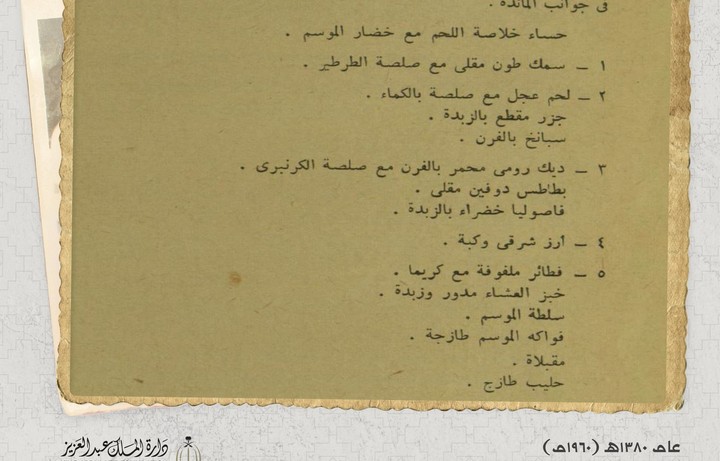 فى جوانب المائدة .
حساء خلاصة اللحم مع خضار الموسم .
١ – سمك طون مقلى مع صلصة الطرطير .
٢ – لحم عجل مع صلصة بالكماء .
جزر مقطع بالزبدة .
سبانخ بالفرن .
٣ – ديك رومى محمر بالفرن مع صلصة الكرنبرى .
بطاطس دوفين مقلى .
فاصوليا خضراء بالزبدة .
٤ – ارز شرقى وكبة .
٥ – فطائر ملفوفة مع كريما .
خبز العشاء مدور وزبدة .
سلطة الموسم .
فواكه الموسم طازجة .
مقبلاة .
حليب طازج .
عام ١٣٨٠هـ (١٩٦٠م)
دارة الملك عبدالعزيز